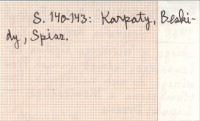 S. 140-143: Karpaty, Beski-
dy, Spisz.